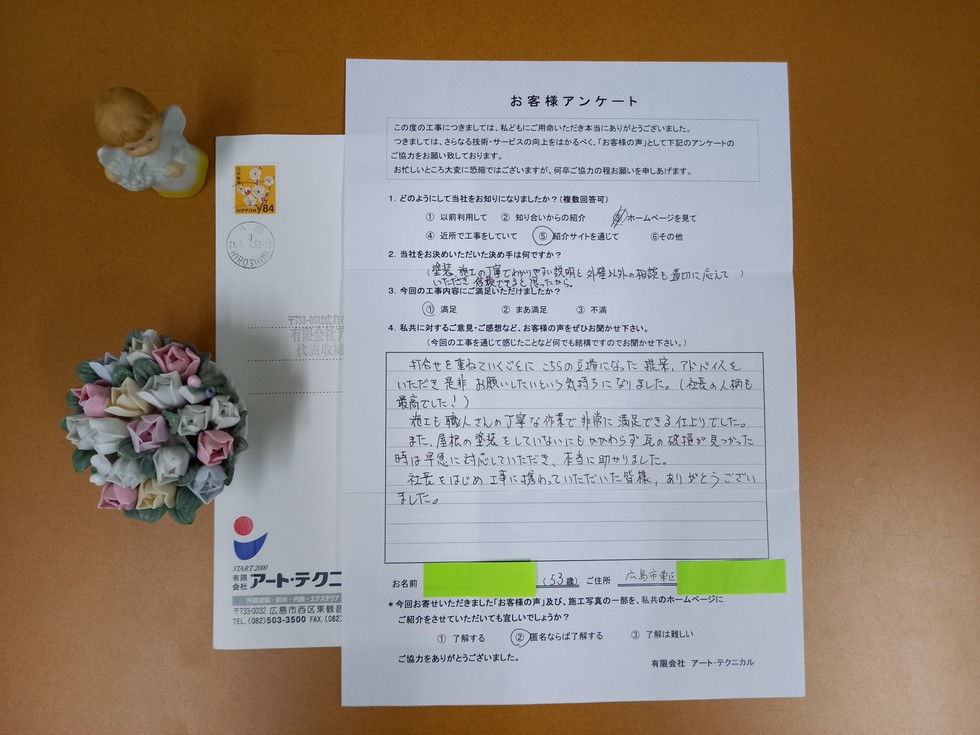 お客様アンケート
この度の工事につきましては、私どもにご用命いただき本当にありがとうございました。
つきましては、さらなる技術・サービスの向上をはかるべく、「お客様の声」として下記のアンケートの
ご協力をお願い致しております。
お忙しいところ大変に恐縮ではございますが、何卒ご協力の程お願いを申しあげます。
1. どのようにして当社をお知りになりましたか?(複数回答可)
① 以前利用して ② 知り合いからの紹介 ホームページを見て
④ 近所で工事をしていて ⑤ 紹介サイトを通じて ⑥その他
2. 当社をお決めいただいた決め手は何ですか?
(塗装、施工の丁寧でわかりやすい説明と外壁以外の相談も適切に応えて )
いただき信頼できると思ったから。
3. 今回の工事内容にご満足いただけましたか?
① 満足 ② まあ満足 ③ 不満
4. 私共に対するご意見・ご感想など、お客様の声をぜひお聞かせ下さい。
(今回の工事を通じて感じたことなど何でも結構ですのでお聞かせ下さい。)
打合せを重ねていくごとに こちらの立場になった 提案、アドバイスを
いただき 是非 お願いしたいという気持ちになりました。(社長の人柄も
最高でした!)
施工も職人さんの丁寧な作業で非常に満足できる仕上りでした。
また、屋根の塗装をしていないにもかかわらず瓦の破損が見つかった
時は早急に対応していただき、本当に助かりました。
社長をはじめ工事に携わっていただいた皆様、ありがとうござい
ました。
お名前 (53歳) ご住所 広島市東区
*今回お寄せいただきました「お客様の声」及び、施工写真の一部を、私共のホームページに
ご紹介をさせていただいても宜しいでしょうか?
① 了解する ② 匿名ならば了解する ③ 了解は難しい
ご協力をありがとうございました。
有限会社 アート・テクニカル
日本郵便
NIPPON 84
HIROSHIMA
〒733-0032広島
有限会社ア
代表取締
START 2000
有限会社 アート・テクニ
外壁塗装・防水・内装・エクステリア
〒733-0032 広島市西区東観音
TEL.(082)503-3500 FAX.(082)